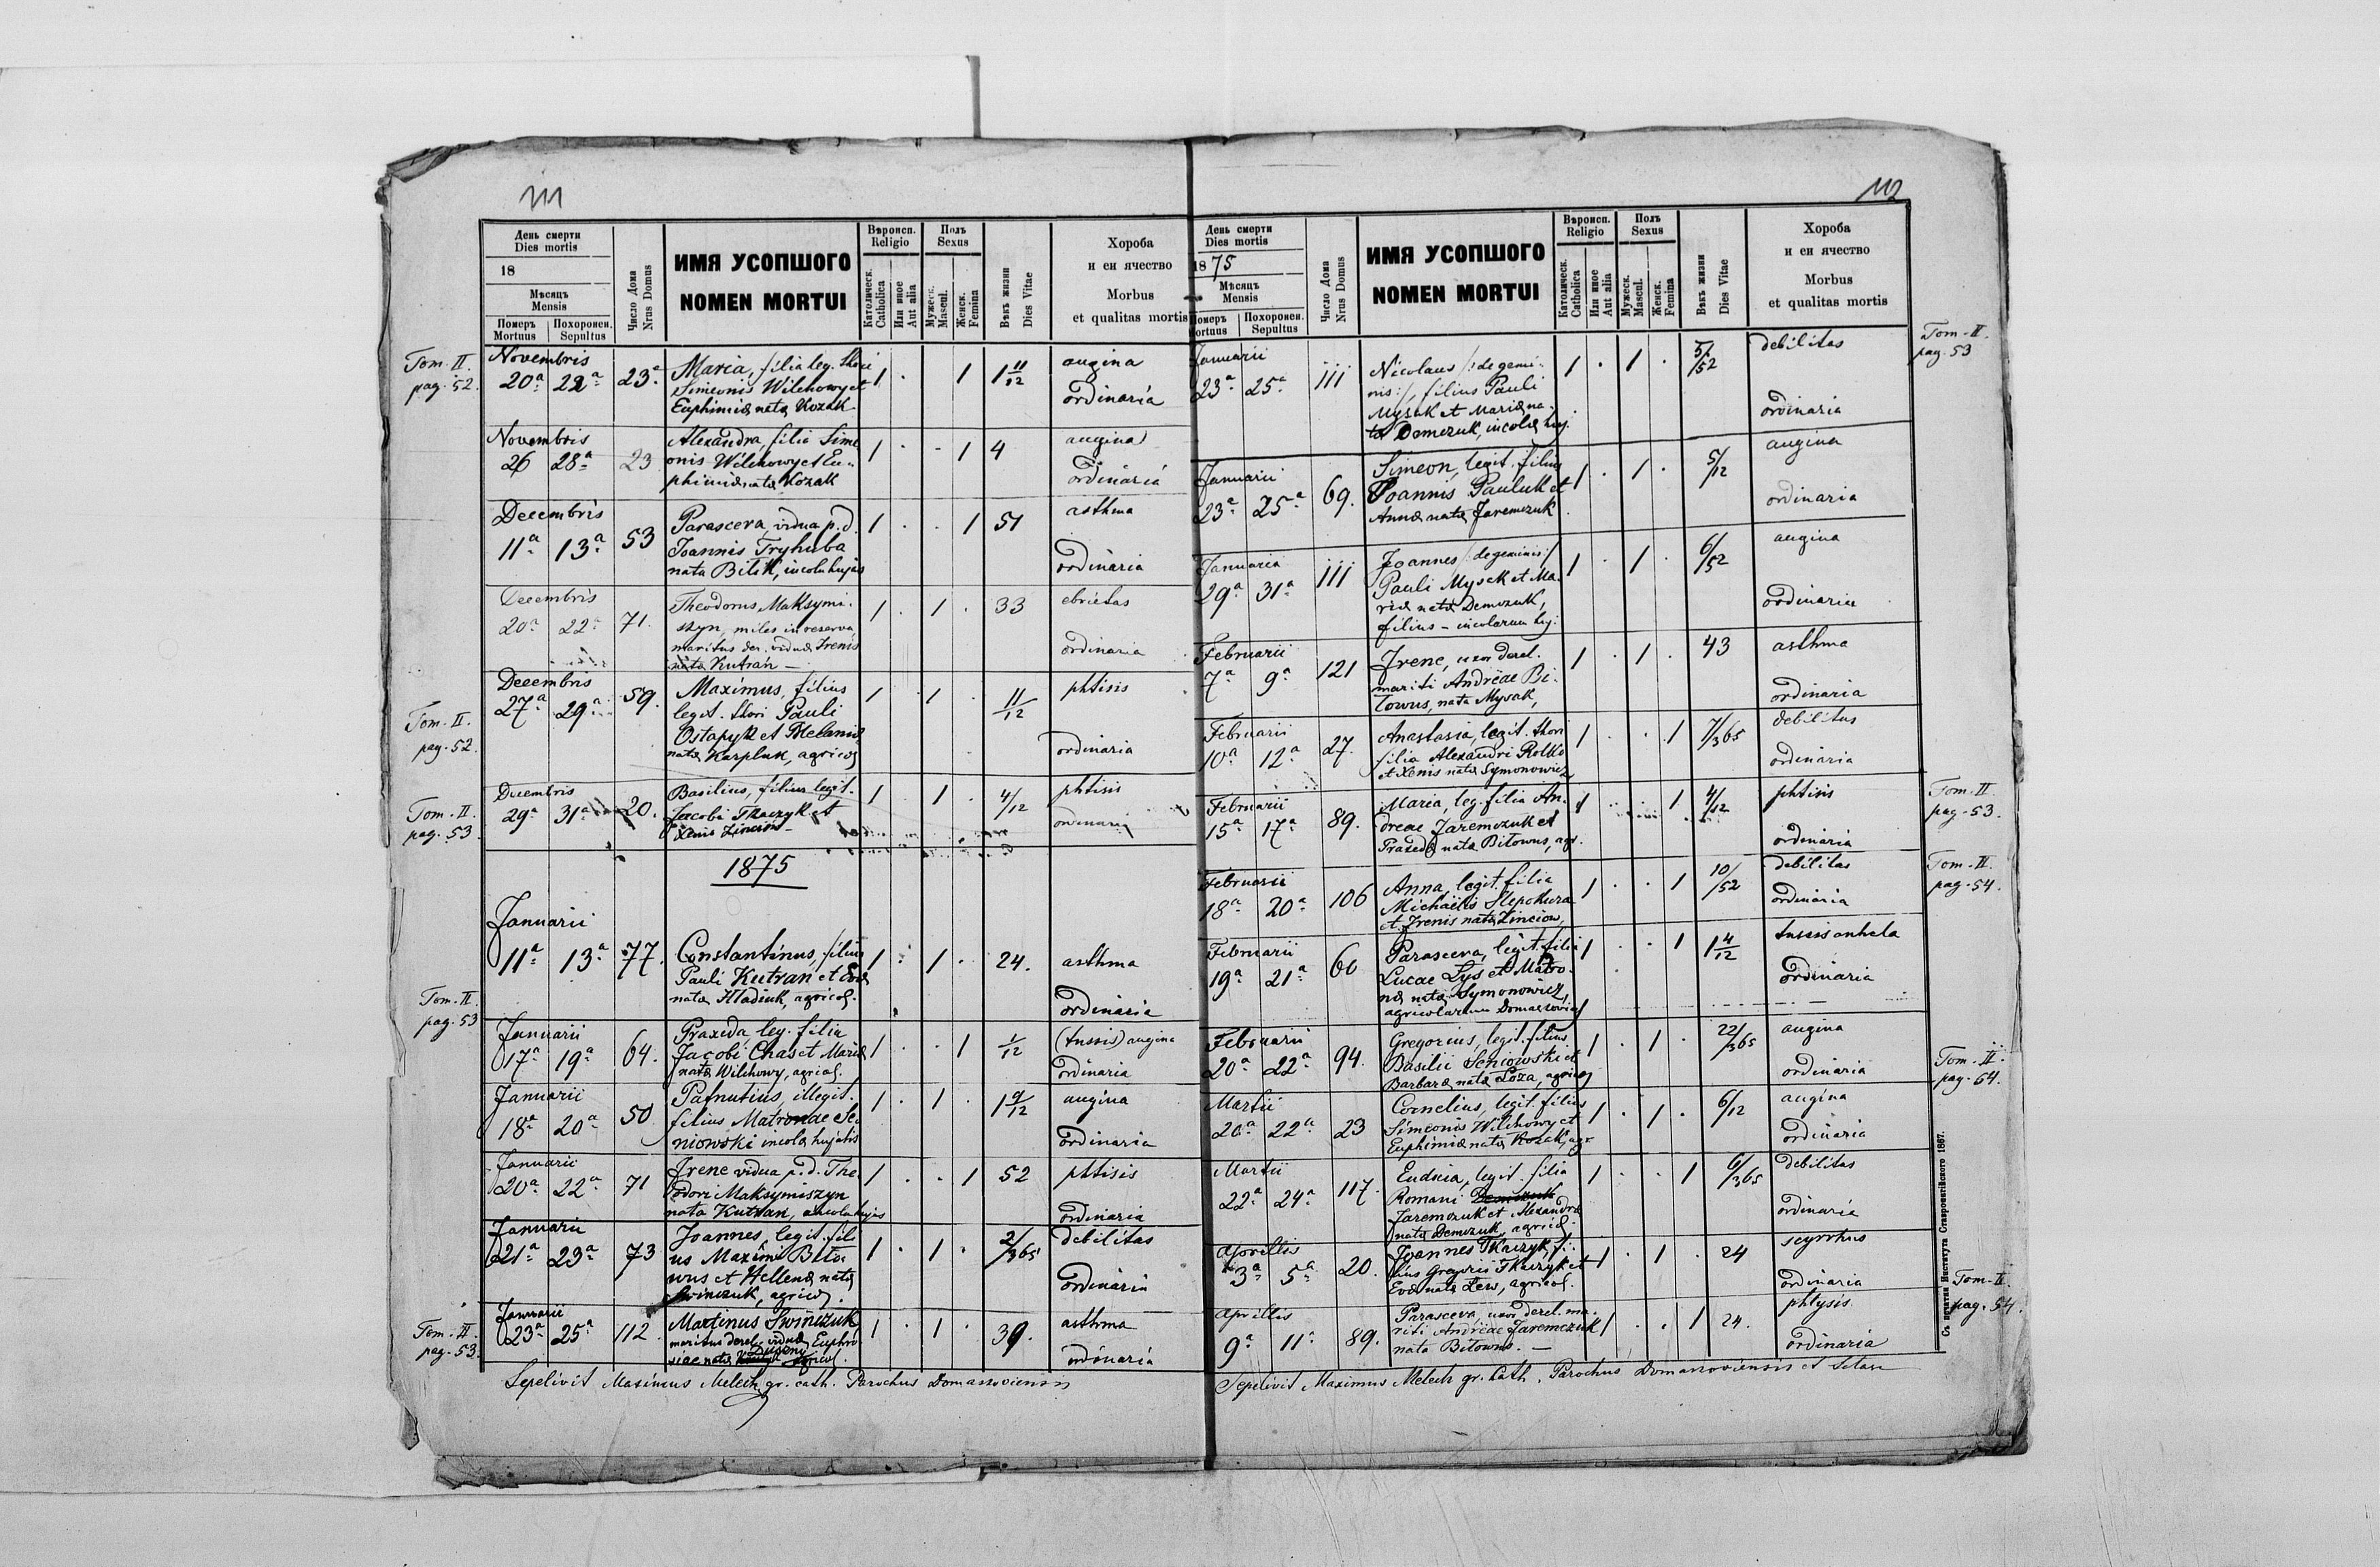 111
День смерти
Dies mortis
18
Мѣсяць
Mensis
Померъ
Mortuus
Похоронен.
Sepultus
Число Дома
Nrus Domus
ИМЯ УСОПШОГО
NOMEN MORTUI
Вѣроисп.
Religio
Католическ.
Catholica
Или иное
Aut alia
Полъ
Sexus
Мужеск.
Mascul.
Женск.
Femina
Вѣкъ жизни
Dies Vitae
Хороба
и еи ячество
Morbus
et qualitas mortis
Tom. II.
pag. 52.
Novembris
20ª 22ª 23
Maria, filia leg. thori
Simeonis Wilchowy et
Euphimiæ natæ Kozak
1 . 1 1 11/12
angina
ordinaria
Novembris
26 28ª 23
Alexandra, filia Sime
onis Wilchowy et Eu-
phimiæ natæ Kozak
1 . - 1 4
angina
ordinaria
Decembris
11ª 13ª 53
Parasceva vidua p. d.
Joannis Tryhuba
nata Bilik, incola hujas
1 . . 1 51
asthma
ordinaria
Decembris
20ª 22ª 71.
Theodorus Maksymi-
szyn, miles in reserva
maritus der. viduæ Irenis
natæ Kutran —
1 . 1 . 33
ebrietas
ordinaria
Tom. II.
pag. 52.
Decembris
27ª 29ª 59.
Maximus, filius
legit. thori Pauli
Ostapyk et Melaniæ
natæ Karpluk, agricol
1 1 11/12
phtisis
ordinaria
Tom. II.
pag. 53.
Decembris
29ª 31ª 20.
Basilius, filius legit.
Jacobi Tkaczyk et
Xenis Zinciow —
1 . 1 . 4/12
phtisis
ordinaria
1875
Tom. II.
pag. 53
Januarii
11ª 13ª 77.
Constantinus, filius
Pauli Kutran et Evæ
natæ Hladiuk, agricol.
1 . 1 . 24.
asthma
ordinaria
Januarii
17ª 19ª 64.
Praxeda, leg. filia
Jacobi Chas et Mariæ
natæ Wilchowy, agricol.
1 . . 1 1/12
(tussis) angina
ordinaria
Januarii
18ª 20ª 50
Pafnutius, illegit.
filius Matronae Se-
niowski incolæ hujatis
1 . 1 . 1 9/12
angina
ordinaria
Januarii
20ª 22ª 71
Irene vidua p. d. The
odori Maksymiszyn
nata Kutran, incola hujas
1 . . 1 52
phtisis
ordinaria
Januarii
21ª 23ª 73
Joannes, legit. fili
us Maximi Bito-
wus et Hellenæ natæ
Swinczuk, agricol.
1 . 1 . 2/365
debilitas
ordinaria
Tom. II.
pag. 53.
Januarii
23ª 25ª 112.
Martinus Swinczuk
maritus derel. viduæ Euphro
siae natæ agricol.
1 . 1 . 39.
asthma
ordinaria
Sepelivit Maximus Melech gr. cath. Parochus Domassoviensis
112
День смерти
Dies mortis
1875
Мѣсяць
Mensis
Померъ
Mortuus
Похоронен.
Sepultus
Число Дома
Nrus Domus
ИМЯ УСОПШОГО
NOMEN MORTUI
Вѣроисп.
Religio
Католическ.
Catholica
Или иное
Aut alia
Полъ
Sexus
Мужеск.
Mascul.
Женск.
Femina
Вѣкъ жизни
Dies Vitae
Хороба
и еи ячество
Morbus
et qualitas mortis
Tom. II.
pag. 53
Januarii
23ª 25ª 111
Nicolaus /: de gemi-
nis :/, filius Pauli
Mysak et Mariæ na-
tæ Demczuk, incolæ huj.
1 . 1 . 5/52
debilitas
ordinaria
Januarii
23ª 25ª 69.
Simeon, legit. filius
Joannis Pauluk et
Annæ natæ Jaremczuk
1 . 1 . 5/12
angina
ordinaria
Januaria
29ª 31ª 111
Joannes /: de geminis :/
Pauli Mysak et Ma-
riæ natæ Demczuk,
filius — incolarum huj:
1 . 1 . 6/52
angina
ordinaria
Februarii
7ª 9ª 121
Irene, uxor derel.
mariti Andreae Bi-
towus, nata Mysak,
1 . 1 . 43
asthma
ordinaria
Februarii
10ª 12ª 27.
Anastasia, legit. thori
filia Alexandri Rolko
et Xenis natæ Symonowicz
1 . . 1 7/365
debilitas
ordinaria
Tom. II.
pag. 53.
Februarii
15ª 17ª 89.
Maria, leg. filia An-
dreae Jaremczuk et
Praxedæ natæ Bitowus, agr.
1 . . 1 4/12
phtisis
ordinaria
Tom. II.
pag. 54.
Februarii
18ª 20ª 106
Anna, legit. filia
Michaelis Slepokura
et Irenis natæ Zinciow,
1 . . 1 10/52
debilitas
ordinaria
Februarii
19ª 21ª 66
Parasceva, legit. filia
Lucae Lys et Matro-
næ natæ Symonowicz,
agricolarum Domaszowien
1 . . 1 1 4/12
tussis anhela
ordinaria
Tom. II.
pag. 54.
Februarii
20ª 22ª 94.
Gregorius, legit. filius
Basilii Seniowski et
Barbaræ natæ Loza, agricol
1 . 1 . 22/365
angina
ordinaria
Martii
20ª 22ª 23
Cornelius, legit. filius
Simeonis Wilchowy et
Euphimiæ natæ Kozak, agr
1 . 1 . 6/12
angina
ordinaria
Martii
22ª 24ª 117.
Eudocia, legit. filia
Romani Demczuk
Jaremczuk et Alexandræ
natæ Demczuk, agricol.
1 . . 1 6/365
debilitas
ordinaria
Tom. II.
pag. 54.
Aprillis
3ª 5ª 20.
Joannes Tkaczyk, fi-
lius Gregorii Tkaczyk et
Evæ natæ Lew, agricol.
1 . 1 . 24
scyrrhus
ordinaria
Aprillis
9ª 11ª 89.
Parasceva, uxor derel. ma-
riti Andreae Jaremczuk
nata Bitowus. —
1 . . 1 24.
phtysis
ordinaria
Sepelivit Maximus Melech gr. Cath. Parochus Domassoviensis et
Съ печатни Института Ставропигійского 1867.